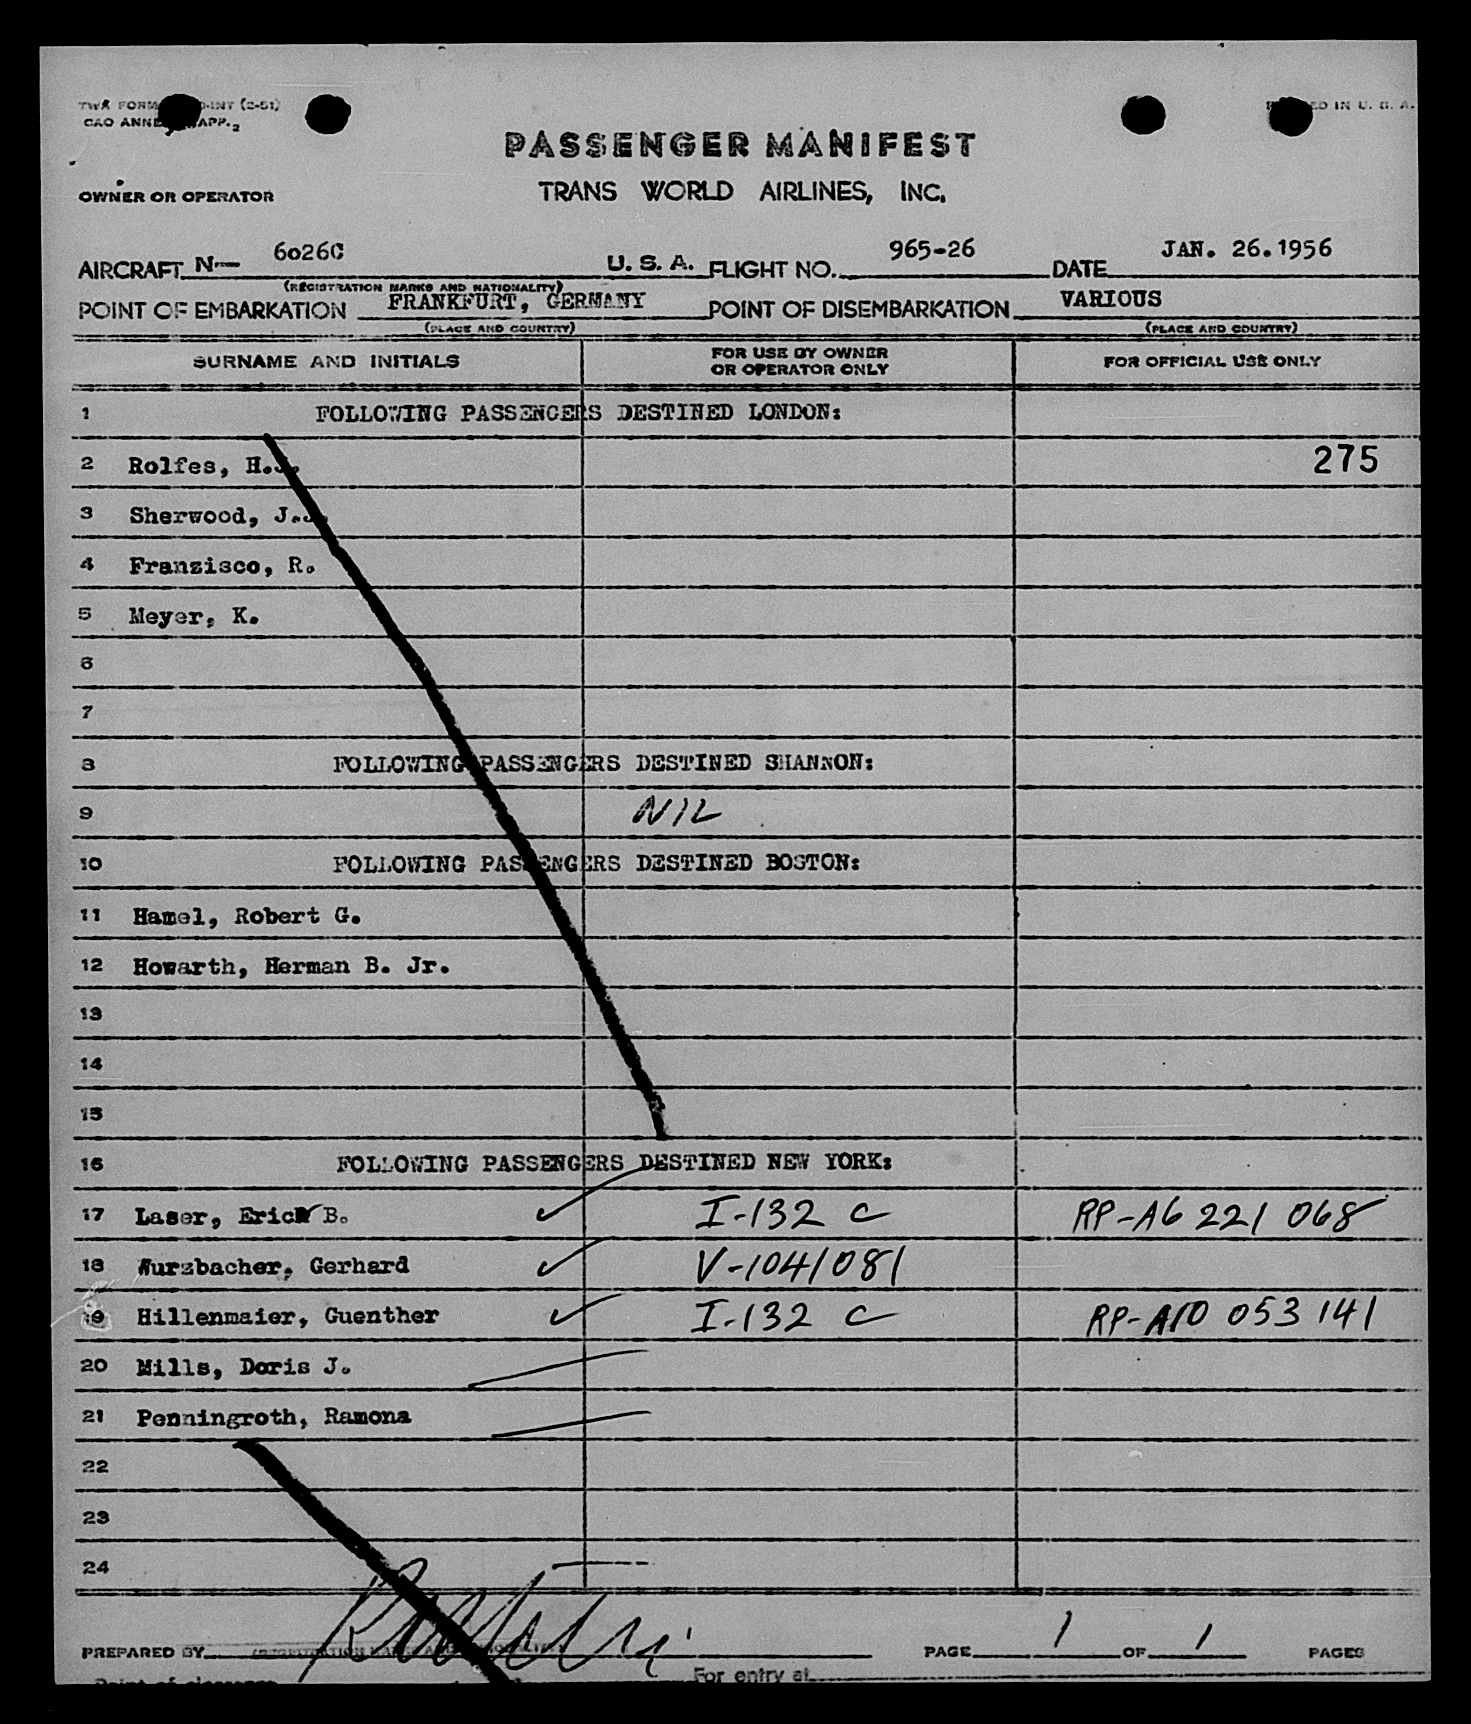 TWA FORM INT (2-51)
CAO ANNE APP. 2
PRINTED IN U. S. A.
PASSENGER MANIFEST
OWNER OR OPERATOR TRANS WORLD AIRLINES, INC.
AIRCRAFT N— 6026C U. S. A. FLIGHT NO. 965-26 DATE JAN. 26.1956
(REGISTRATION MARKS AND NATIONALITY)
POINT OF EMBARKATION FRANKFURT, GERMANY POINT OF DISEMBARKATION VARIOUS
(PLACE AND COUNTRY) (PLACE AND COUNTRY)
SURNAME AND INITIALS FOR USE BY OWNER OR OPERATOR ONLY FOR OFFICIAL USE ONLY
1 FOLLOWING PASSENGERS DESTINED LONDON:
2 Rolfes, H.J. 275
3 Sherwood, J.J.
4 Franzisco, R.
5 Meyer, K.
6
7
8 FOLLOWING PASSENGERS DESTINED SHANNON:
9 NIL
10 FOLLOWING PASSENGERS DESTINED BOSTON:
11 Hamel, Robert G.
12 Howarth, Herman B. Jr.
13
14
15
16 FOLLOWING PASSENGERS DESTINED NEW YORK:
17 Laser, Erich B. I-132 C RP-A6 221 068
18 Wurzbacher, Gerhard V-1041081
19 Hillenmaier, Guenther I-132 C RP-A10 053 141
20 Mills, Doris J.
21 Penningroth, Ramona
22
23
24
PREPARED BY PAGE 1 OF 1 PAGES
For entry at